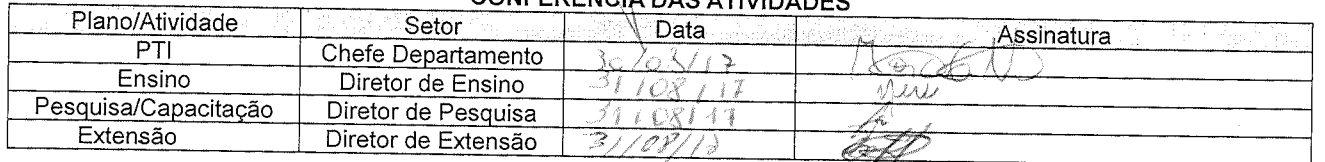 CONFERÊNCIA DAS ATIVIDADES
Plano/Atividade Setor Data Assinatura
PTI Chefe Departamento 30/08/17
Ensino Diretor de Ensino 31/08/17
Pesquisa/Capacitação Diretor de Pesquisa 31/08/17
Extensão Diretor de Extensão 31/08/17